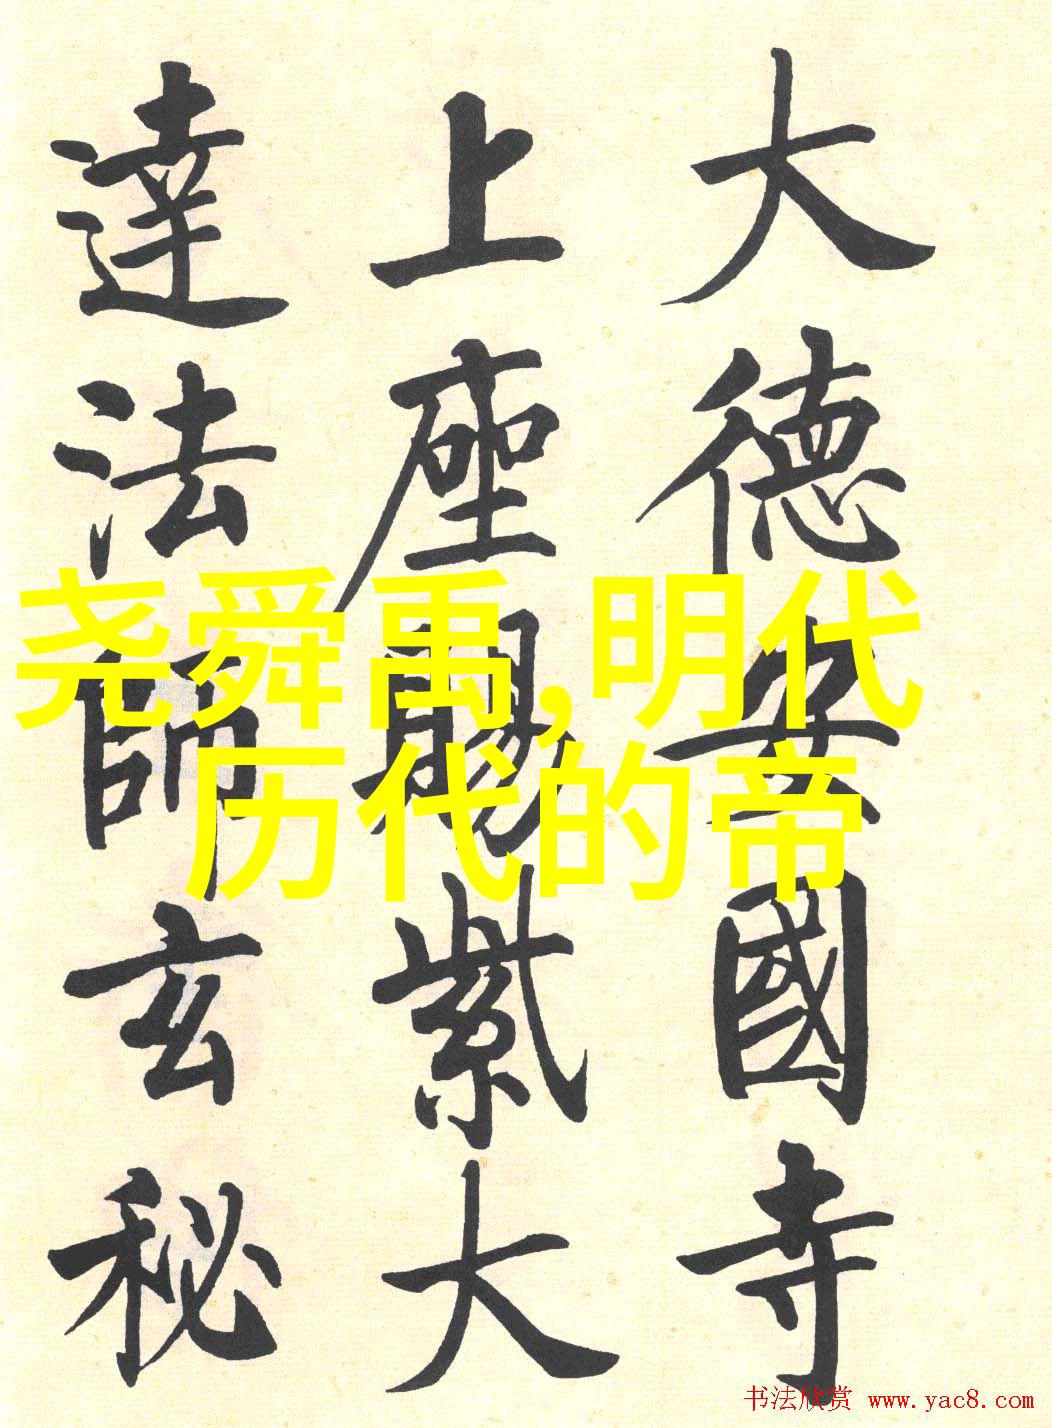 大德安國寺
上座賜紫大
達法師玄秘
尧舜禹,明代
历代的帝
书法欣赏 www.yac8.com